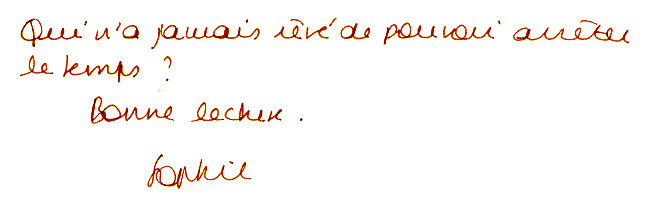 Qui n'a jamais rêvé de pouvoir arrêter
le temps ?
Bonne lecture.
Sophie